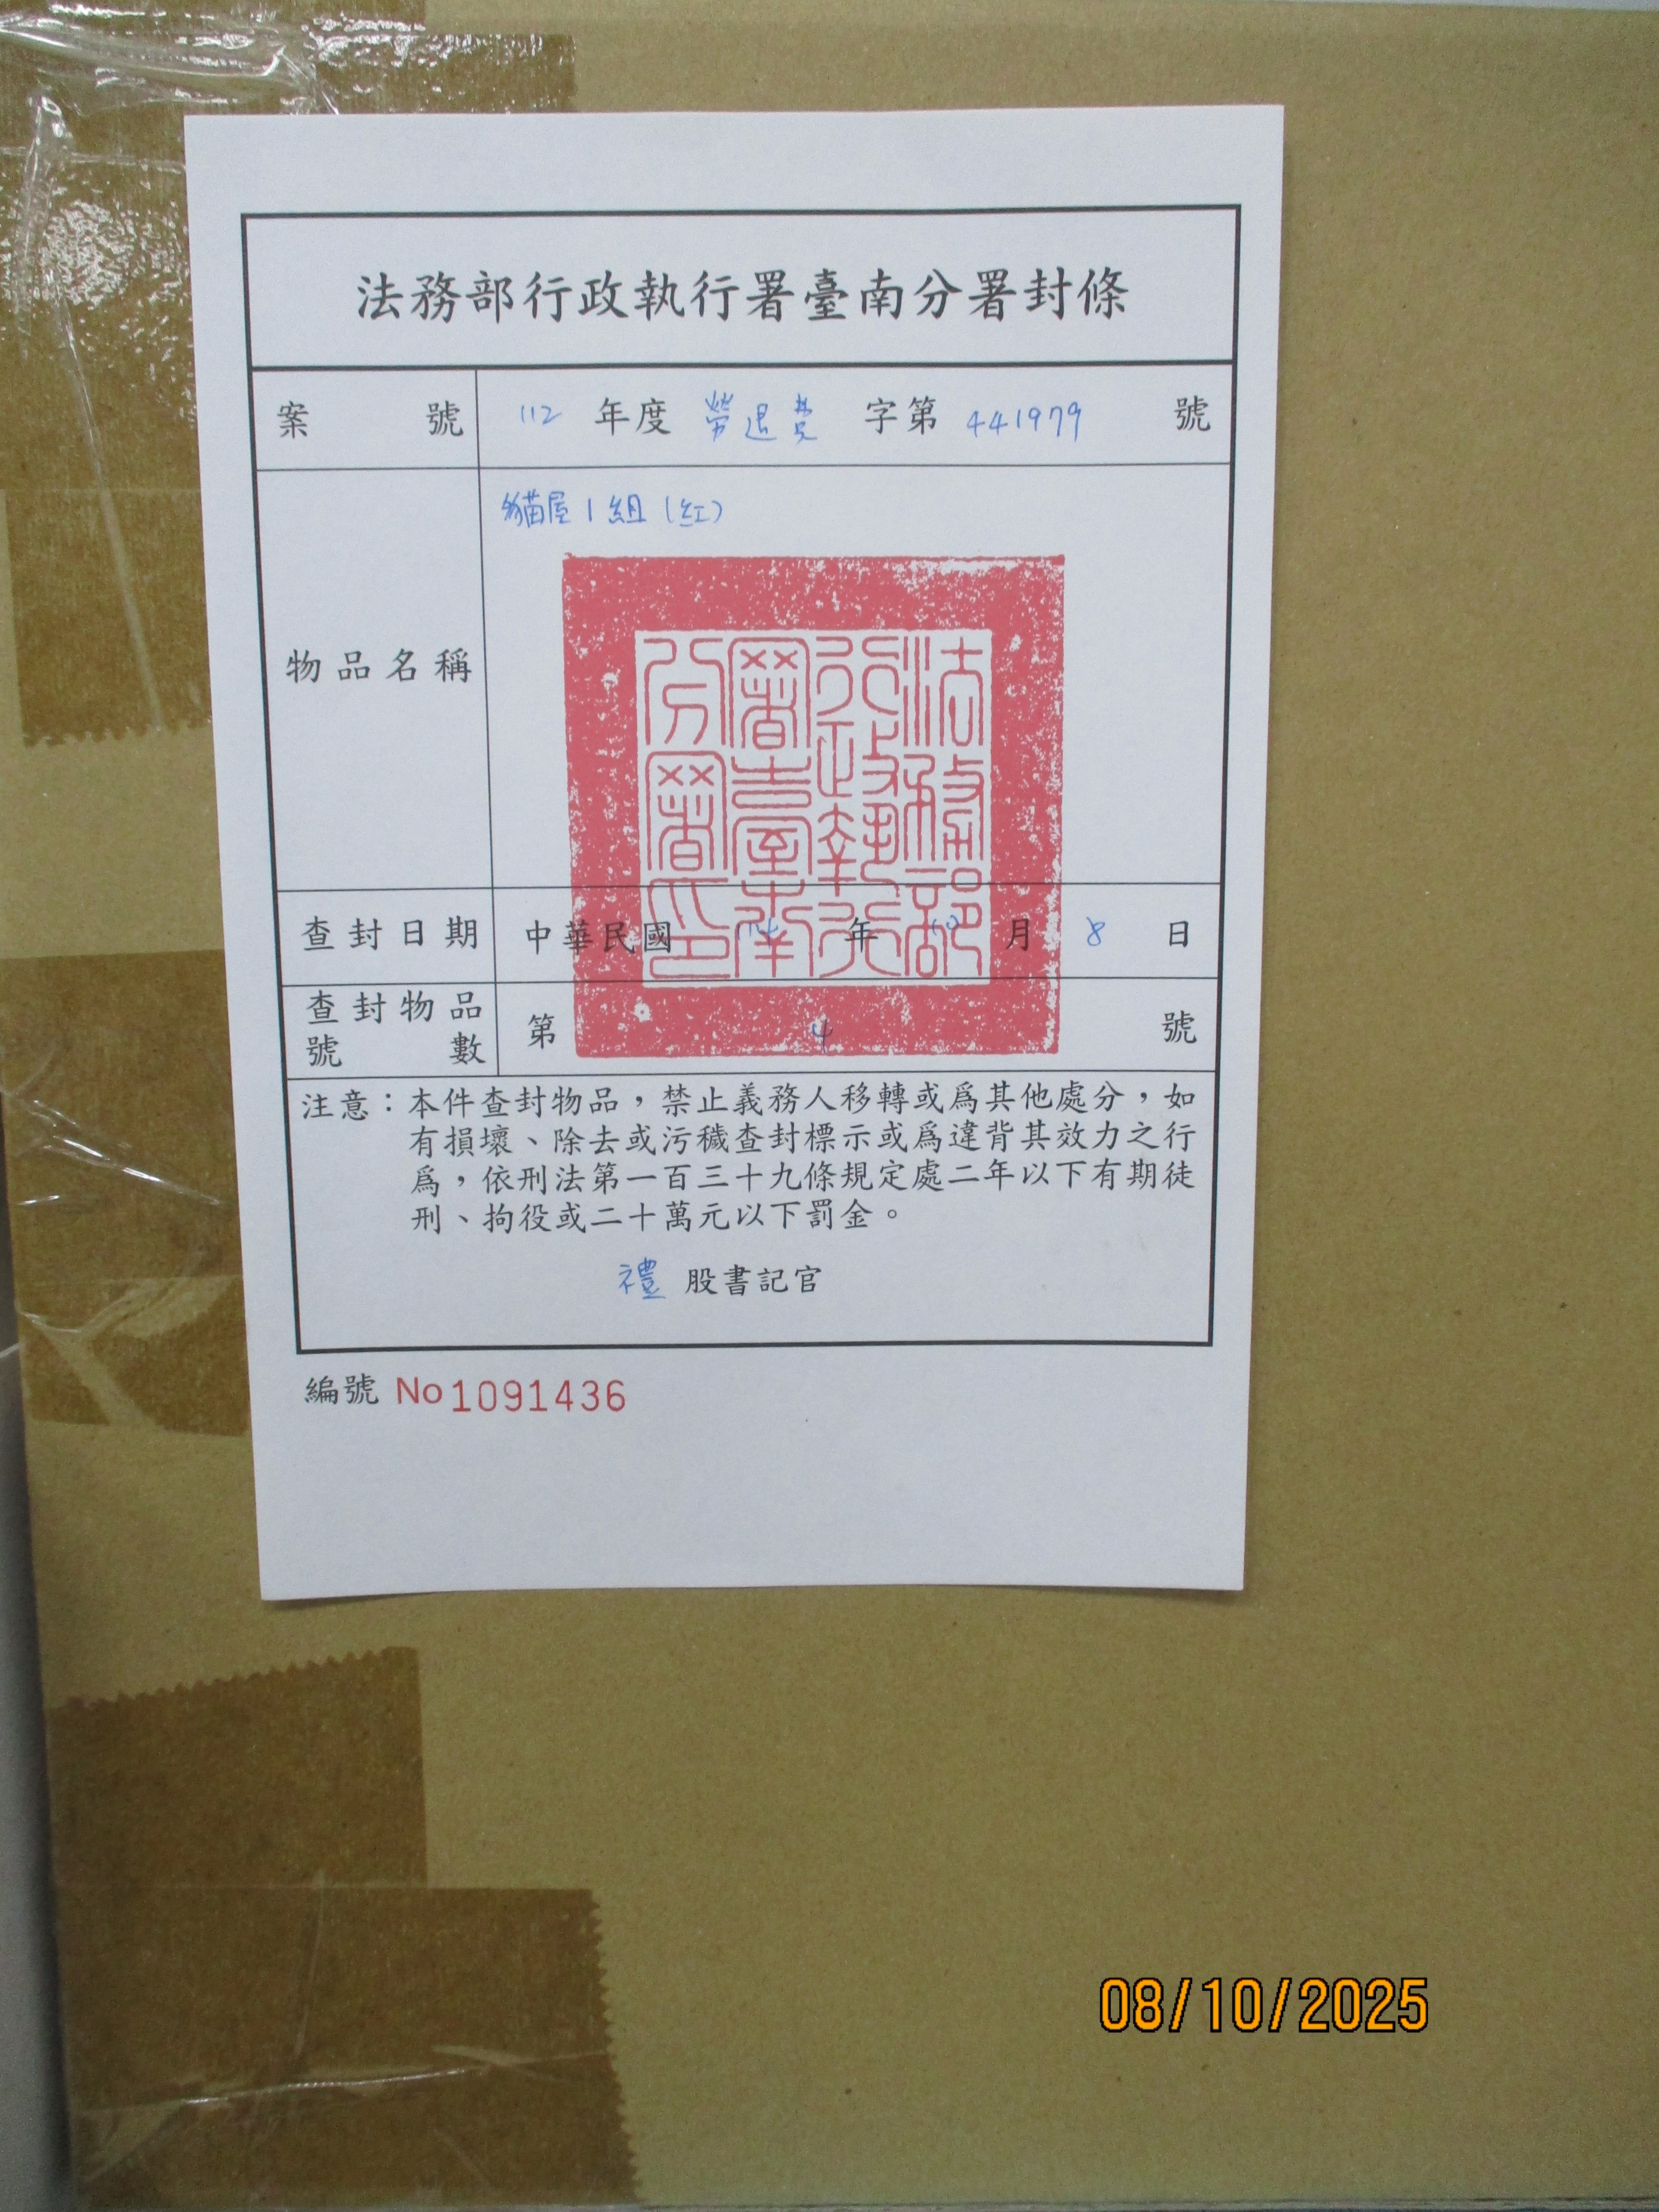 法務部行政執行署臺南分署封條
案號 112 年度 勞退費 字第 441979 號
物品名稱 貓屋1組(紅)
法務部行政執行署臺南分署印
查封日期 中華民國 114 年 10 月 8 日
查封物品號數 第 4 號
注意：本件查封物品，禁止義務人移轉或為其他處分，如
有損壞、除去或污穢查封標示或為違背其效力之行
為，依刑法第一百三十九條規定處二年以下有期徒
刑、拘役或二十萬元以下罰金。
禮 股書記官
編號 No 1091436
08/10/2025